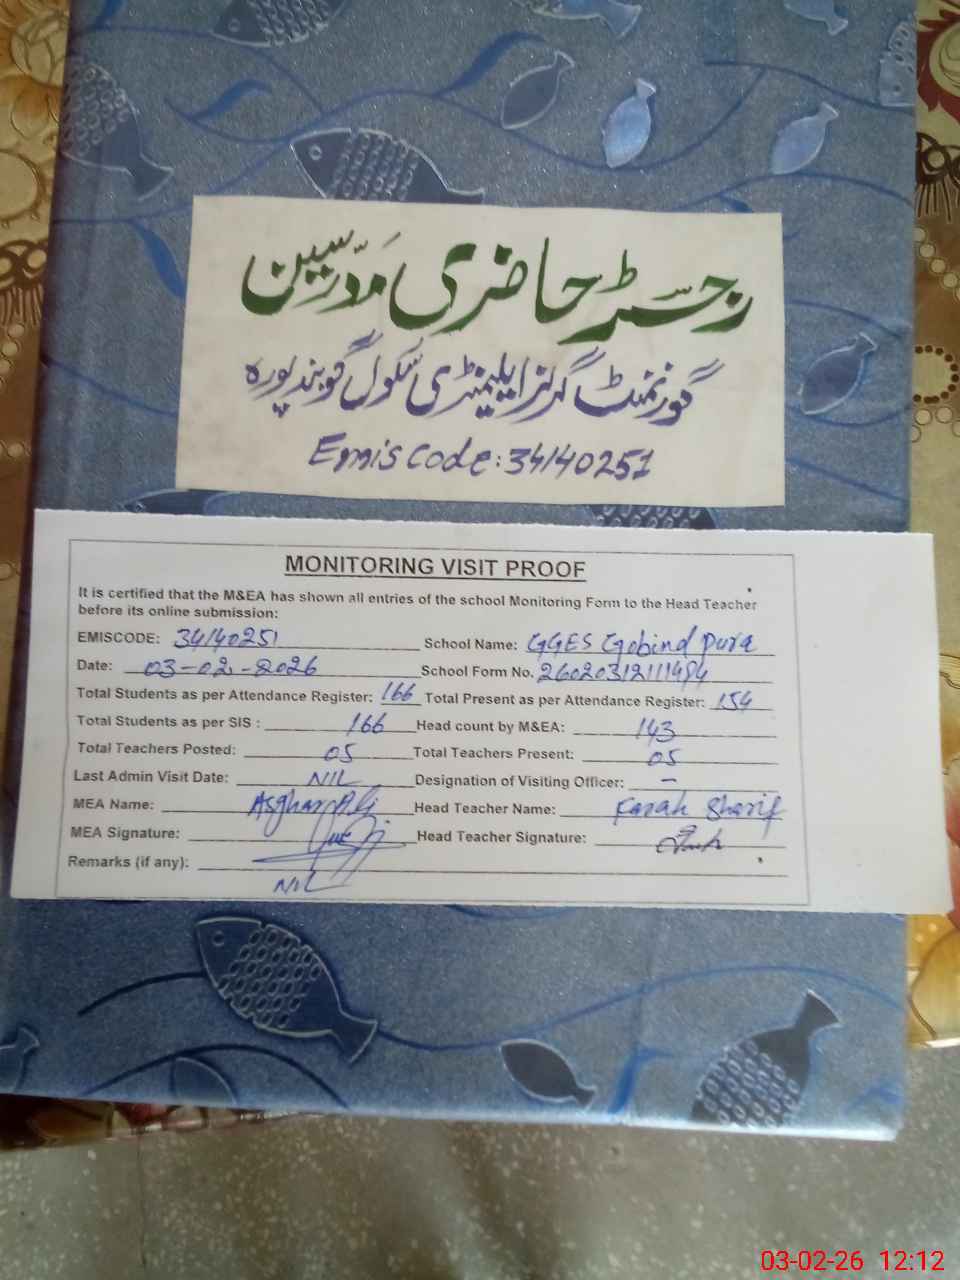 رجسٹر حاضری مدرسین
گورنمنٹ گرلز ایلیمنٹری سکول گوبند پورہ
Emis Code: 34140251
MONITORING VISIT PROOF
It is certified that the M&EA has shown all entries of the school Monitoring Form to the Head Teacher
before its online submission:
EMISCODE: 34140251 School Name: GGES Gobind Pura
Date: 03-02-2026 School Form No. 26020312111484
Total Students as per Attendance Register: 166 Total Present as per Attendance Register: 154
Total Students as per SIS : 166 Head count by M&EA: 143
Total Teachers Posted: 05 Total Teachers Present: 05
Last Admin Visit Date: NIL Designation of Visiting Officer: –
MEA Name: Asghar Ali Head Teacher Name: Farah Sharif
MEA Signature: Head Teacher Signature:
Remarks (if any): NIL
03-02-26 12:12